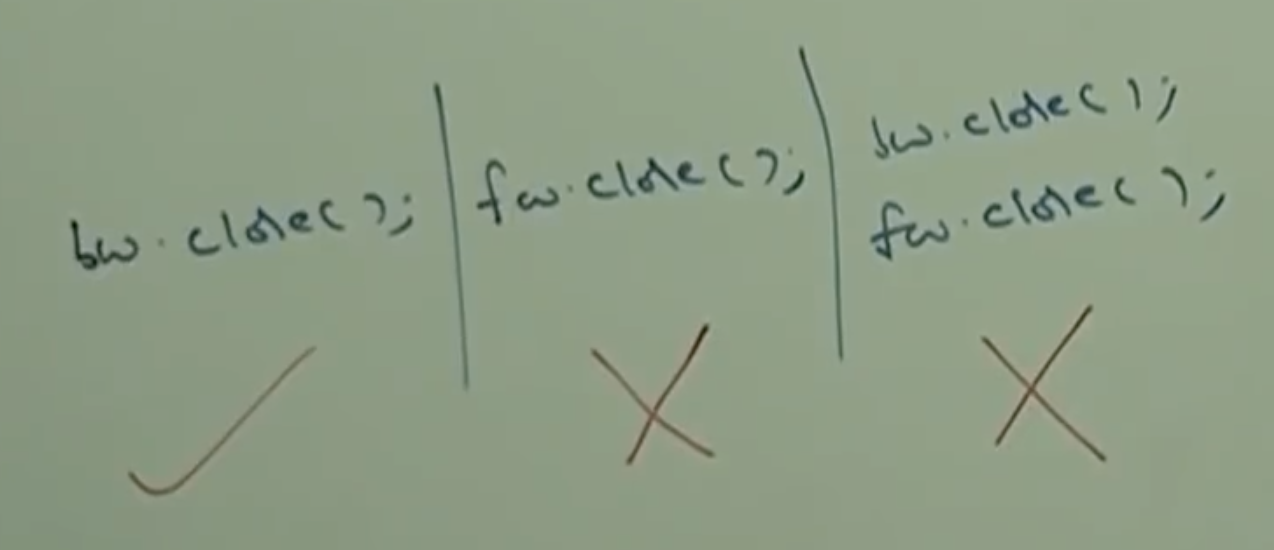 bw.close();
fw.close();
bw.close();
fw.close();